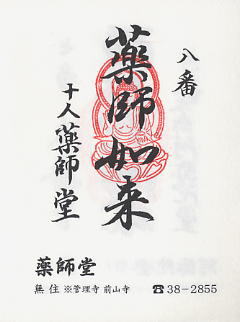 八番
薬師如来
十人薬師堂
薬師堂
無住 ※管理寺 前山寺 ☎38-2855